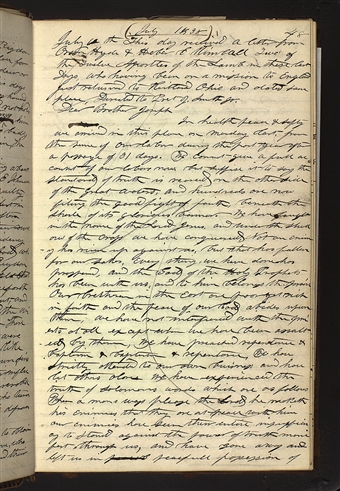 July 1838
July 6th This day received a letter from
Orson Hyde & Heber C. Kimball Two of
the Twelve Apostles of the Lamb in these last
Days who having been on a mission to England
just returned to Kirtland Ohio and dated same
place, Directed to Prest. J. Smith jr.
Dear Brother Joseph
In health peace & safty
we arrived in this place on Monday last, from
the scene of our labor during the past year after
a passage of 31 days. We cannot give a full ac
count of our labors now but suffice it to say the
standard of truth is reared on the other side
of the great waters, and hundreds are now
fiting the good fight of faith beneath the
shade of its glorious banner. We have fought
in the name of the Lord Jesus, and under the shadow
of the cross we have conquered, Not an enemy
has risen up against us, but that has fallen
for our sakes. Every thing we have done has
prospered, and the God of the Holy Prophets
has been with us, and to him belongs the praise
Our bretheren in the East are poor yet rich
in faith and the peace of our God abides upon
them, we have not interfered with the priests
at all except when we have been assaulted
by them, We have preached repentance &
baptism & baptism & repentance, We have
strictly attended to our own buisness and have
let others alone We have experienced the
truth of solomons words which are as follows
When a mans ways please the Lord he maketh
his enemies that they are at peace with him
our enemies have seen their entire
to stand against the power of truth
through us, and have gone away and
left us in peacefull possession of